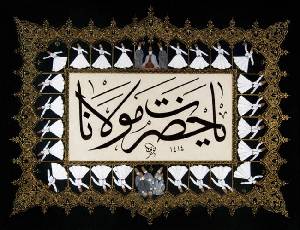 يا حضرت مولانا
١٤١٤